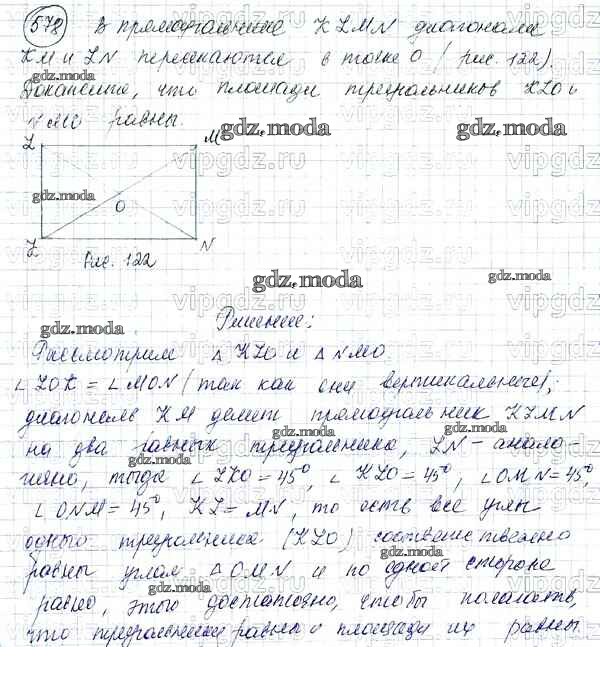 578 В прямоугольнике KLMN диагонали
KM и LN пересекаются в точке O (рис. 122).
Докажите, что площади треугольников KLO и
NMO равны.
L M
O
N
Рис. 122
Решение:
Рассмотрим △ KLO и △ NMO
∠ LOK = ∠ MON (так как они вертикальные);
диагональ KM делит прямоугольник KLMN
на два равных треугольника, LN – анало-
гично, тогда ∠ LKO = 45°, ∠ KLO = 45°, ∠ OMN = 45°,
∠ ONM = 45°, KL = MN, то есть все углы
одного треугольника (KLO) соответственно
равны углам △ OMN и по одной стороне
равно, этого достаточно, чтобы показать,
что треугольники равны и площади их равны.
gdz.moda
vipgdz.ru